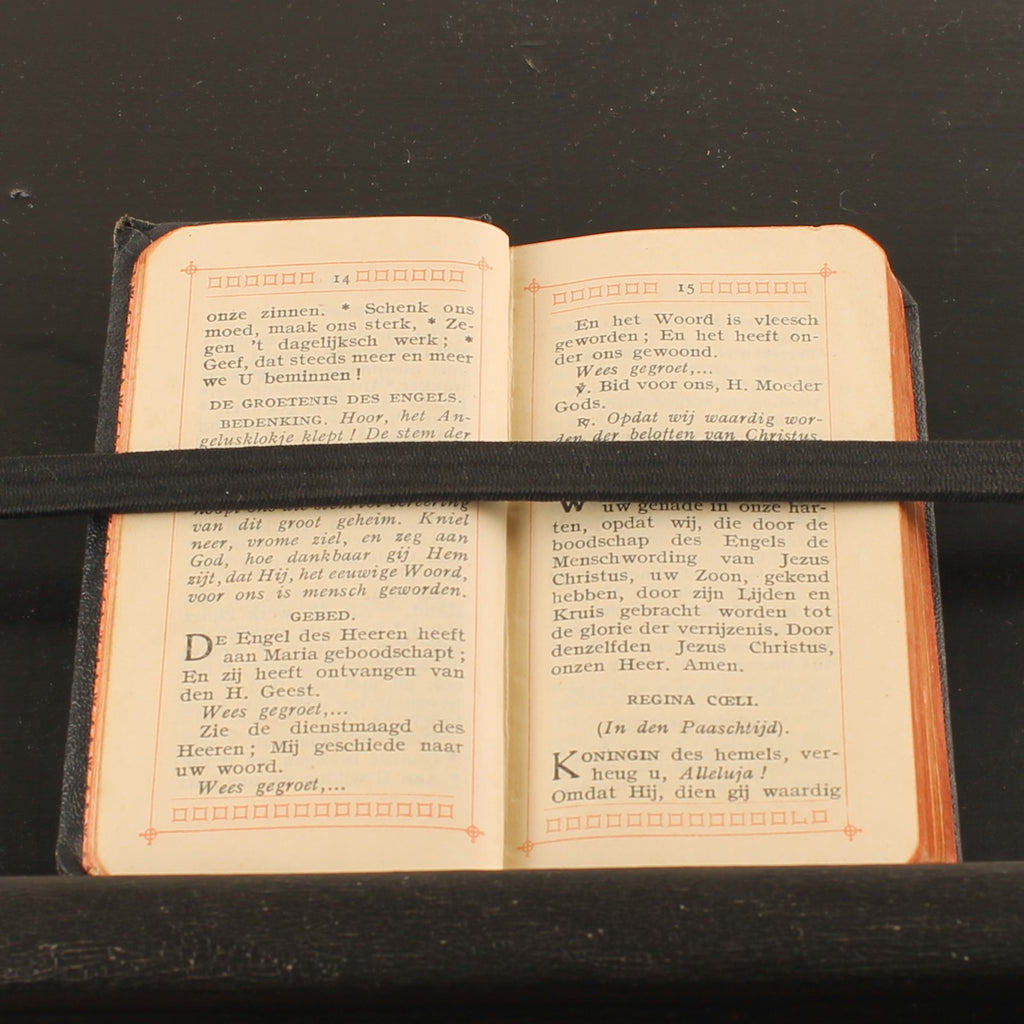 14
onze zinnen. * Schenk ons
moed, maak ons sterk, * Ze-
gen 't dagelijksch werk; *
Geef, dat steeds meer en meer
we U beminnen!
DE GROETENIS DES ENGELS.
BEDENKING. Hoor, het An-
gelusklokje klept! De stem der
van dit groot geheim. Kniel
neer, vrome ziel, en zeg aan
God, hoe dankbaar gij Hem
zijt, dat Hij, het eeuwige Woord,
voor ons is mensch geworden.
GEBED.
DE Engel des Heeren heeft
aan Maria geboodschapt;
En zij heeft ontvangen van
den H. Geest.
Wees gegroet,...
Zie de dienstmaagd des
Heeren; Mij geschiede naar
uw woord.
Wees gegroet,...
15
En het Woord is vleesch
geworden; En het heeft on-
der ons gewoond.
Wees gegroet,...
℣. Bid voor ons, H. Moeder
Gods.
℟. Opdat wij waardig wor-
den der beloften van Christus.
uw genade in onze har-
ten, opdat wij, die door de
boodschap des Engels de
Menschwording van Jezus
Christus, uw Zoon, gekend
hebben, door zijn Lijden en
Kruis gebracht worden tot
de glorie der verrijzenis. Door
denzelfden Jezus Christus,
onzen Heer. Amen.
REGINA CŒLI.
(In den Paaschtijd).
KONINGIN des hemels, ver-
heug u, Alleluja!
Omdat Hij, dien gij waardig